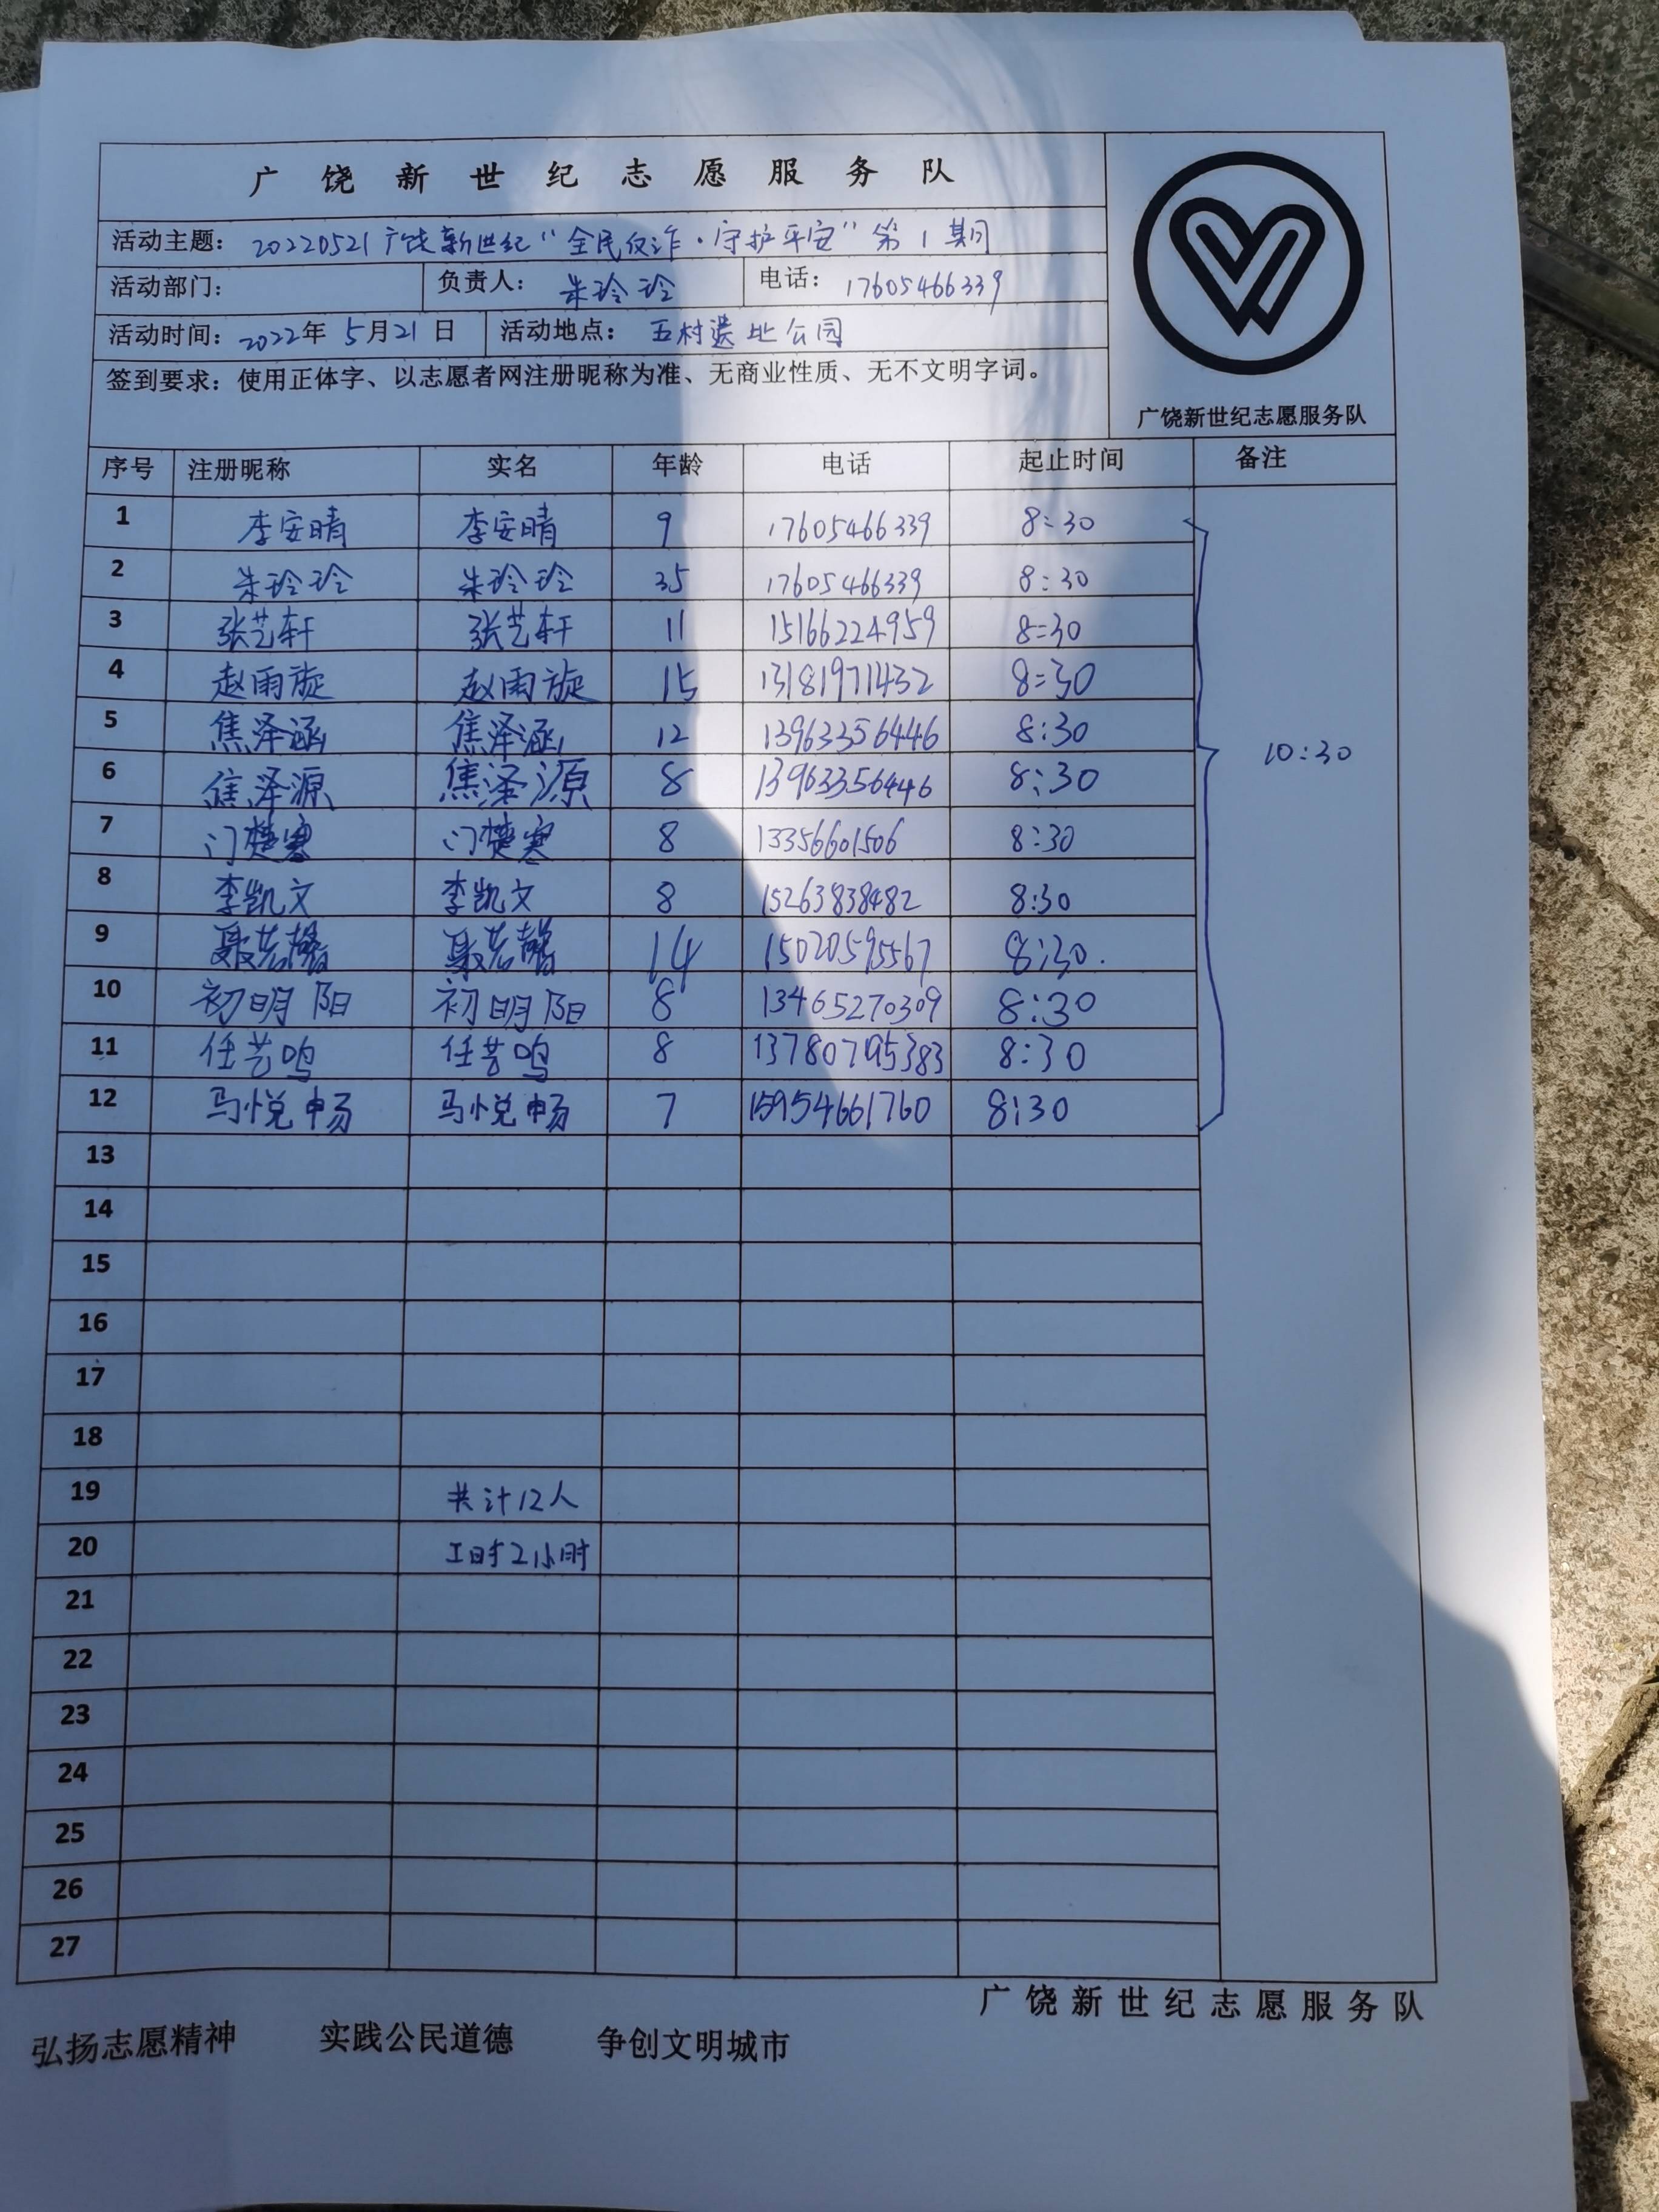 广饶新世纪志愿服务队
活动主题：20220521广饶新世纪“全民反诈·守护平安”第1期
活动部门： 负责人：朱玲玲 电话：17605466339
活动时间：2022年5月21日 活动地点：五村遗址公园
签到要求：使用正体字、以志愿者网注册昵称为准、无商业性质、无不文明字词。
广饶新世纪志愿服务队
序号 注册昵称 实名 年龄 电话 起止时间 备注
1 李安晴 李安晴 9 17605466339 8:30
2 朱玲玲 朱玲玲 35 17605466339 8:30
3 张艺轩 张艺轩 11 15166224959 8:30
4 赵雨旋 赵雨旋 15 13181971432 8:30
5 焦泽涵 焦泽涵 12 13963356446 8:30
10:30
6 焦泽源 焦泽源 8 13963356446 8:30
7 门楚寒 门楚寒 8 13356601506 8:30
8 李凯文 李凯文 8 15263838482 8:30
9 聂若馨 聂若馨 14 15020595567 8:30.
10 初明阳 初明阳 8 13465270309 8:30
11 任艺鸣 任艺鸣 8 13780795383 8:30
12 马悦畅 马悦畅 7 15954661760 8:30
13
14
15
16
17
18
19 共计12人
20 工时2小时
21
22
23
24
25
26
27
广饶新世纪志愿服务队
弘扬志愿精神 实践公民道德 争创文明城市